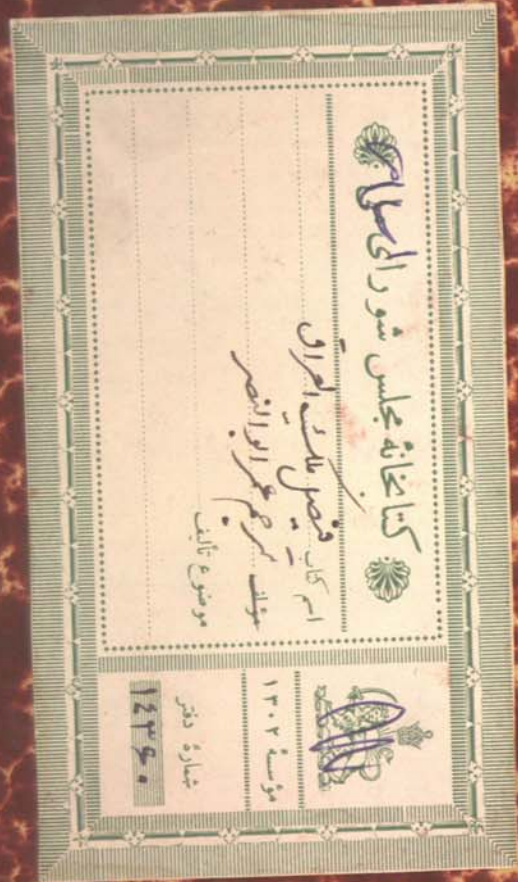 کتابخانهٔ مجلس شورای اسلامی
اسم کتاب فیصل ملک العراق
مؤلف مترجم عمر ابوالنصر
موضوع تألیف
مؤسسهٔ ۱۳۰۲
شمارهٔ دفتر
۱۴۳۶۰